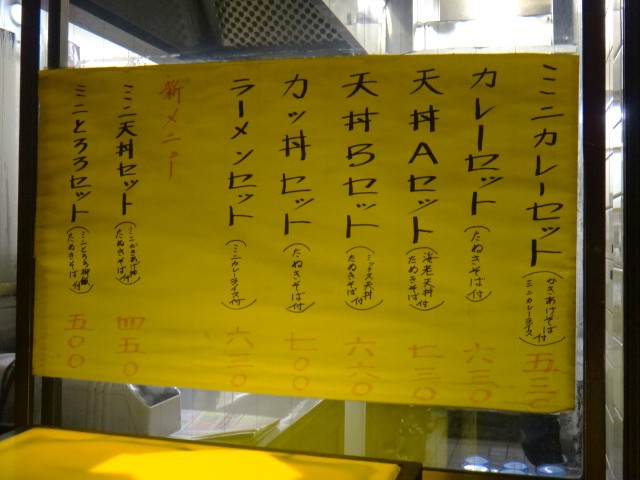 ミニカレーセット(かきあげそば付 ミニカレーライス) 五三〇
カレーセット(たぬきそば付) 六三〇
天丼Aセット(海老天丼付 たぬきそば付) 七三〇
天丼Bセット(ミックス天丼 たぬきそば付) 六六〇
カツ丼セット(たぬきそば付) 七〇〇
ラーメンセット(ミニカレーライス付) 六三〇
新メニュー
ミニ天丼セット(ミニかきあげ丼 たぬきそば付) 四五〇
ミニとろろセット(ミニとろろ御飯 たぬきそば付) 五〇〇